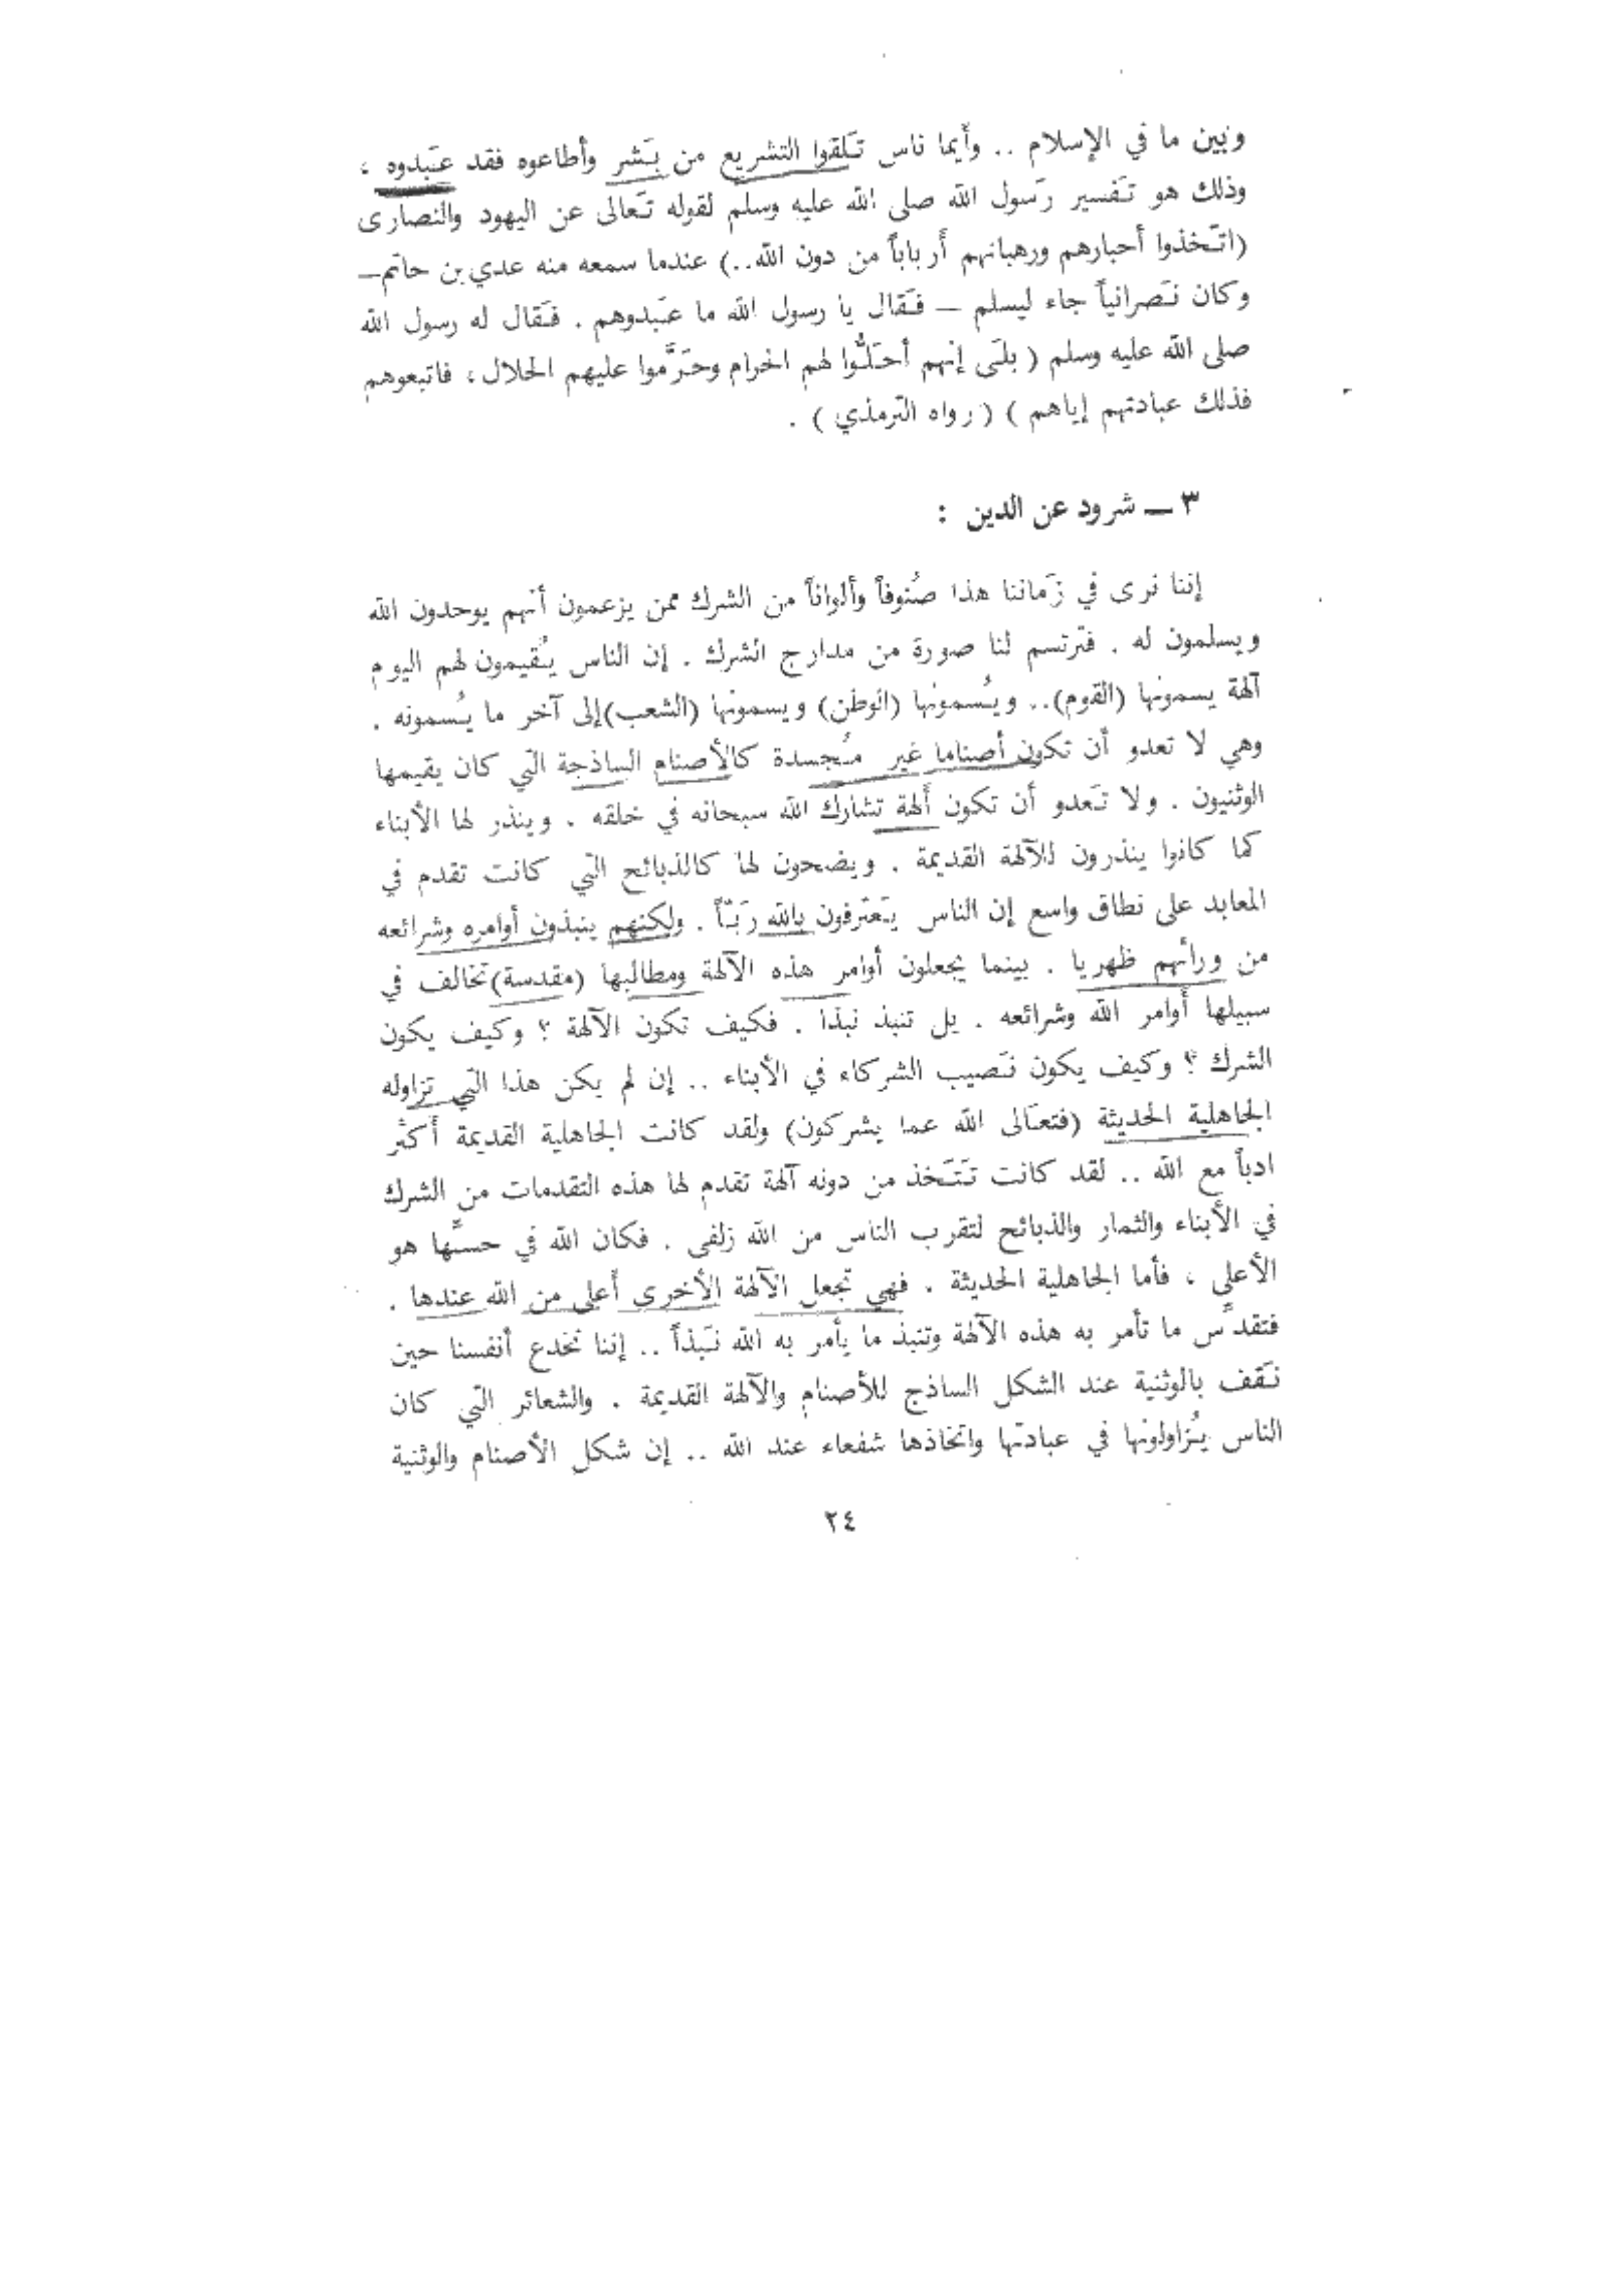 وبين ما في الإسلام .. وأيما ناس تَلقوا التشريع من بَشر وأطاعوه فقد عَبدوه ،
وذلك هو تَفسير رَسول الله صلى الله عليه وسلم لقوله تَعالى عن اليهود والنصارى
(اتَخذوا أحبارهم ورهبانهم أرباباً من دون الله..) عندما سمعه منه عدي بن حاتم —
وكان نَصرانياً جاء ليسلم — فَقال يا رسول الله ما عَبدوهم . فَقال له رسول الله
صلى الله عليه وسلم ( بلَى إنهم أحَلُّوا لهم الحرام وحَرَّموا عليهم الحلال ، فاتبعوهم
فذلك عبادتهم إياهم ) ( رواه الترمذي ) .
٣ — شرود عن الدين :
إننا نرى في زَماننا هذا صُنوفاً وألواناً من الشرك ممن يزعمون أنهم يوحدون الله
ويسلمون له . فترتسم لنا صورة من مدارج الشرك . إن الناس يُقيمون لهم اليوم
آلهة يسمونها (القوم).. ويُسمونها (الوطن) ويسمونها (الشعب) إلى آخر ما يُسمونه .
وهي لا تعدو أن تكون أصناما غير مُجسدة كالأصنام الساذجة التي كان يقيمها
الوثنيون . ولا تَعدو أن تكون ألهة تشارك الله سبحانه في خلقه . وينذر لها الأبناء
كما كانوا ينذرون للآلهة القديمة . ويضحون لها كالذبائح التي كانت تقدم في
المعابد على نطاق واسع إن الناس يَعترفون بالله رَبّاً . ولكنهم ينبذون أوامره وشرائعه
من ورائهم ظهريا . بينما يجعلون أوامر هذه الآلهة ومطالبها (مقدسة) تخالف في
سبيلها أوامر الله وشرائعه . بل تنبذ نبذا . فكيف تكون الآلهة ؟ وكيف يكون
الشرك ؟ وكيف يكون نَصيب الشركاء في الأبناء .. إن لم يكن هذا التي تزاوله
الجاهلية الحديثة (فتعَالى الله عما يشركون) ولقد كانت الجاهلية القديمة أكثر
ادباً مع الله .. لقد كانت تَتَخذ من دونه آلهة تقدم لها هذه التقدمات من الشرك
في الأبناء والثمار والذبائح لتقرب الناس من الله زلفى . فكان الله في حسِّها هو
الأعلى ، فأما الجاهلية الحديثة . فهي تجعل الآلهة الأخرى أعلى من الله عندها .
فتقدِّس ما تأمر به هذه الآلهة وتنبذ ما يأمر به الله نَبذاً .. إننا نخدع أنفسنا حين
نَقف بالوثنية عند الشكل الساذج للأصنام والآلهة القديمة . والشعائر التي كان
الناس يُزاولونها في عبادتها واتخاذها شفعاء عند الله .. إن شكل الأصنام والوثنية
٢٤